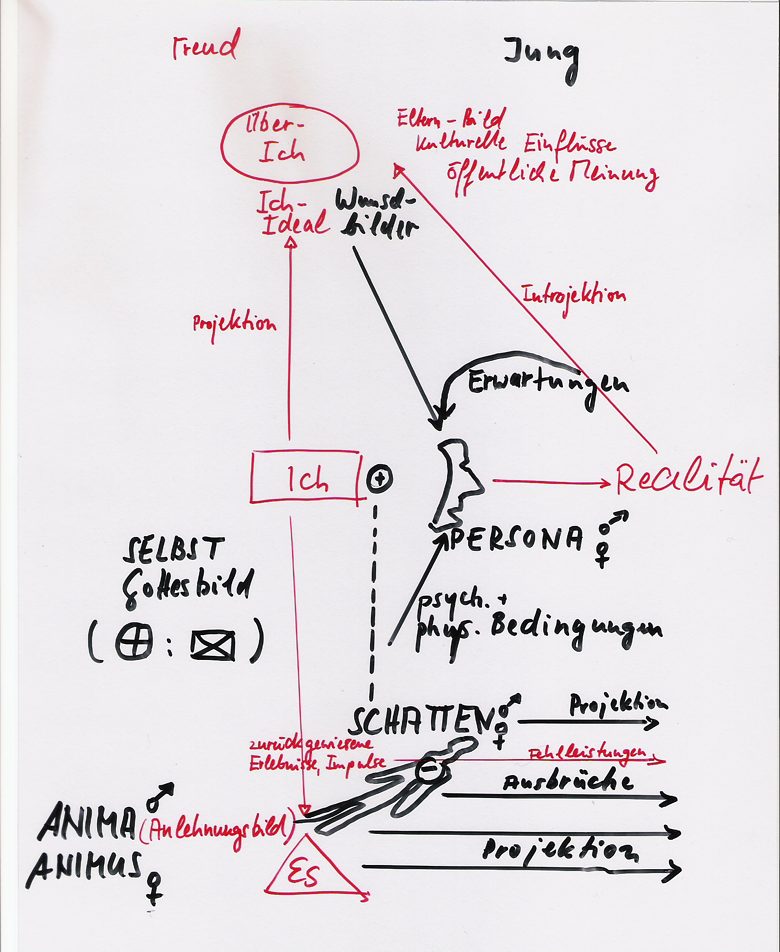 Freud
Jung
Über-
Ich
Eltern-Bild
kulturelle Einflüsse
öffentliche Meinung
Ich-
Ideal
Wunsch-
bilder
Projektion
Introjektion
Erwartungen
Ich
+
Realität
PERSONA ♂
♀
SELBST
Gottesbild
(⊕: ☒)
psych. +
phys. Bedingungen
SCHATTEN ♂
♀
Projektion
zurückgewiesene
Erlebnisse, Impulse
−
Fehlleistungen
Ausbrüche
ANIMA ♂ (Anlehnungsbild)
ANIMUS ♀
Es
Projektion